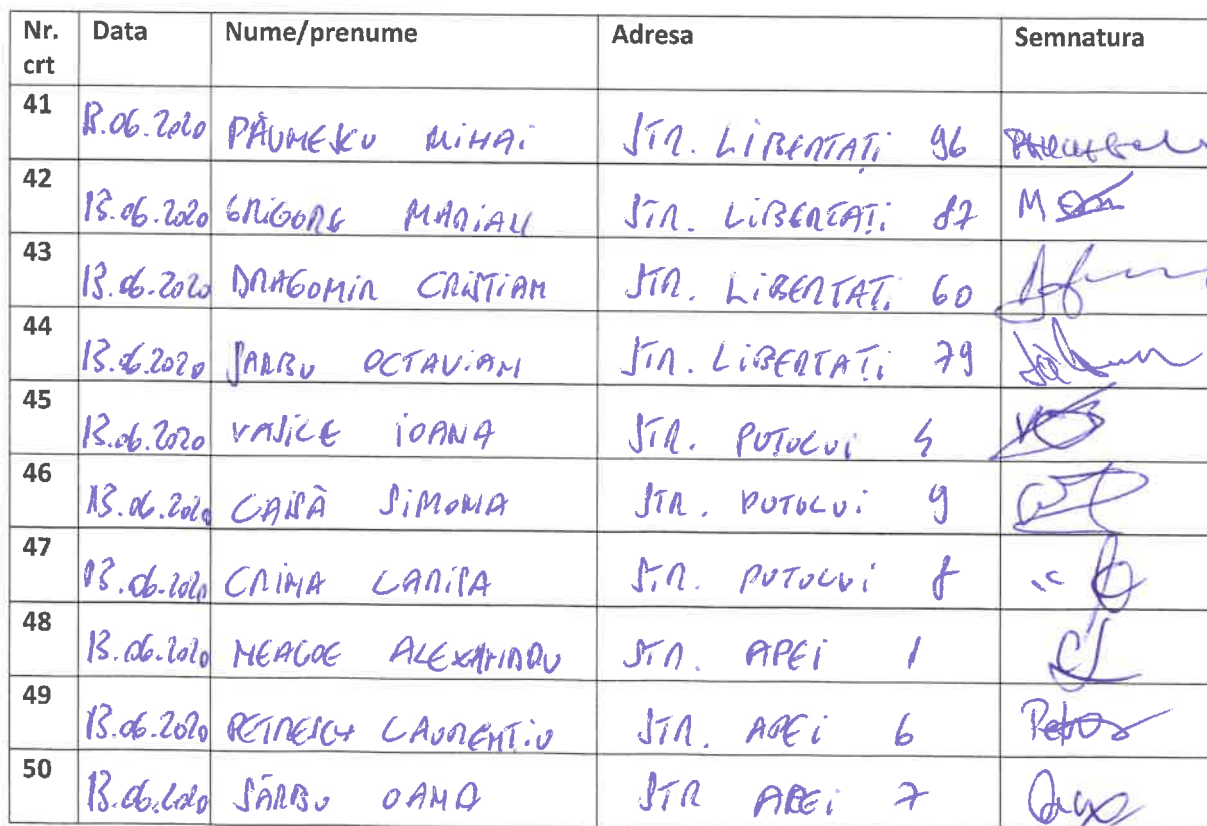 Nr. crt Data Nume/prenume Adresa Semnatura
41 13.06.2020 PĂUNESCU MIHAI STR. LIBERTĂȚI 96
42 13.06.2020 GRIGORE MARIAN STR. LIBERTAȚI 87
43 13.06.2020 DRAGOMIR CRISTIAN STR. LIBERTAȚI 60
44 13.06.2020 SARBU OCTAVIAN STR. LIBERTAȚI 79
45 13.06.2020 VASILE IOANA STR. PUTULUI 5
46 13.06.2020 SIMONA STR. PUTULUI 9
47 13.06.2020 CRINA LARISA STR. PUTULUI 8
48 13.06.2020 NEAGOE ALEXANDRU STR. APEI 1
49 13.06.2020 PETRESCU LAURENTIU STR. APEI 6
50 13.06.2020 SÂRBU OANA STR APEI 7